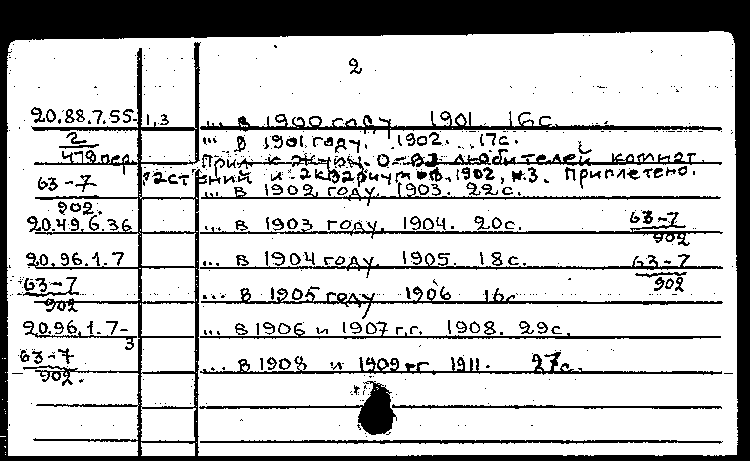 2
20.88.7.55- 1,3 ... в 1900 году. 1901 16с.
2/479 пер. ... в 1901 году. 1902. 17с.
Прил. к журн. О-ва любителей комнат.
63-7/902. раст ений и аквариумов. 1902, н.3. Приплетено.
... в 1902 году. 1903. 22с.
20.49.6.36 ... в 1903 году. 1904. 20с. 63-7/902
20.96.1.7 ... в 1904 году. 1905. 18с. 63-7/902
63-7/902 ... в 1905 году 1906 16с
20.96.1.7-3 ... в 1906 и 1907 г.г. 1908. 29с.
63-7/902. ... в 1908 и 1909 гг. 1911. 27с.